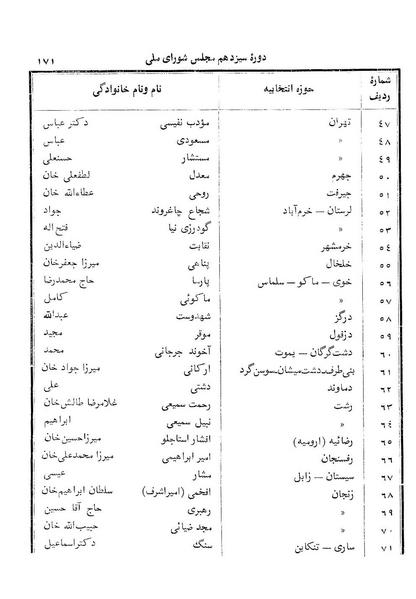 دورهٔ سیزدهم مجلس شورای ملی ۱۷۱
شمارهٔ ردیف حوزه انتخابیه نام ونام خانوادگی
۴۷ تهران مؤدب نفیسی دکتر عباس
۴۸ » مسعودی عباس
۴۹ » مستشار حسنعلی
۵۰ جهرم معدل لطفعلی خان
۵۱ جیرفت روحی عطاءالله خان
۵۲ لرستان – خرم‌آباد شجاع چاغروند جواد
۵۳ » گودرزی نیا فتح اله
۵۴ خرمشهر نقابت ضیاءالدین
۵۵ خلخال پناهی میرزا جعفرخان
۵۶ خوی – ماکو – سلماس پارسا حاج محمدرضا
۵۷ » ماکوئی کامل
۵۸ درگز شهدوست عبدالله
۵۹ دزفول موقر مجید
۶۰ دشت‌گرگان – یموت آخوند جرجانی محمد
۶۱ بنی‌طرف‌دشت‌میشان‌سوسن‌گرد ارکانی میرزا جواد خان
۶۲ دماوند دشتی علی
۶۳ رشت رحمت سمیعی غلامرضا طالش‌خان
۶۴ » نبیل سمیعی ابراهیم
۶۵ رضائیه (ارومیه) افشار استاجلو میرزاحسین‌خان
۶۶ رفسنجان امیر ابراهیمی میرزا محمدعلی‌خان
۶۷ سیستان – زابل مشار عیسی
۶۸ زنجان افخمی (امیراشرف) سلطان ابراهیم‌خان
۶۹ » رهبری حاج آقا حسین
۷۰ » مجد ضیائی حبیب‌الله خان
۷۱ ساری – تنکابن سنگ دکتراسماعیل